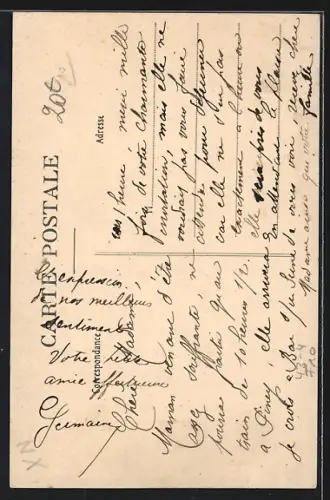 CARTE POSTALE
Correspondance
Adresse
20t
Chère Madame
Maman son amie d'été
assez souffrante, ne
pourra partir qu'au
train de 10 heures 1/2
à Piney, elle arrivera
je crois à Bar s/ Seine
ers 1 heure merci mille
fois de votre charmante
invitation, mais elle ne
voudrait pas vous faire
attendre pour déjeuner
car elle ne s'en pas
exactement à l'heure ou
elle sera près de vous
En attendant le plaisir
de vous voir recevez chère
Madame ainsi que votre famille
l'expression
de nos meilleurs
sentiments
Votre petite
amie affectueuse
Germaine